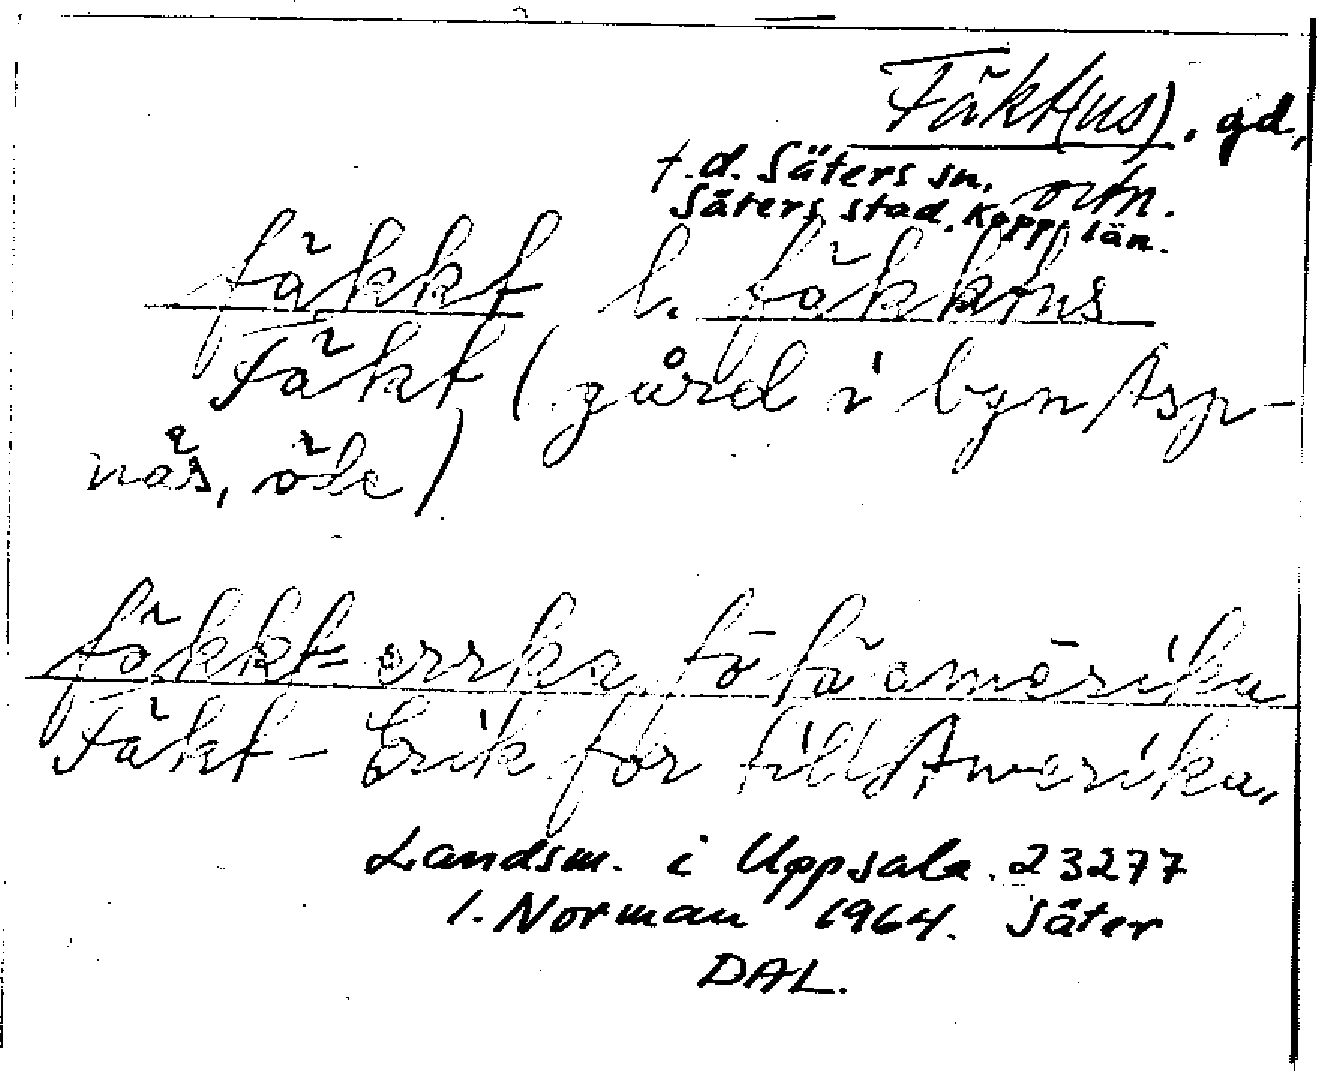 Fäkt(us), gd,
f.d. Säters sn, ortn.
Säters stad. Kopp. län.
fäkkt l. fäkktus
Fäkt (gård i byn Asp-
näs, öde)
fäkkt-errka fo tä amérika
Fäkt-Erik for till Amerika.
Landsm. i Uppsala. 23277
I. Norman 1964. Säter
DAL.